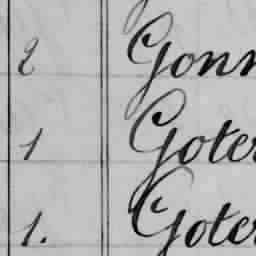 2 Gonn
1 Goter
1. Goter